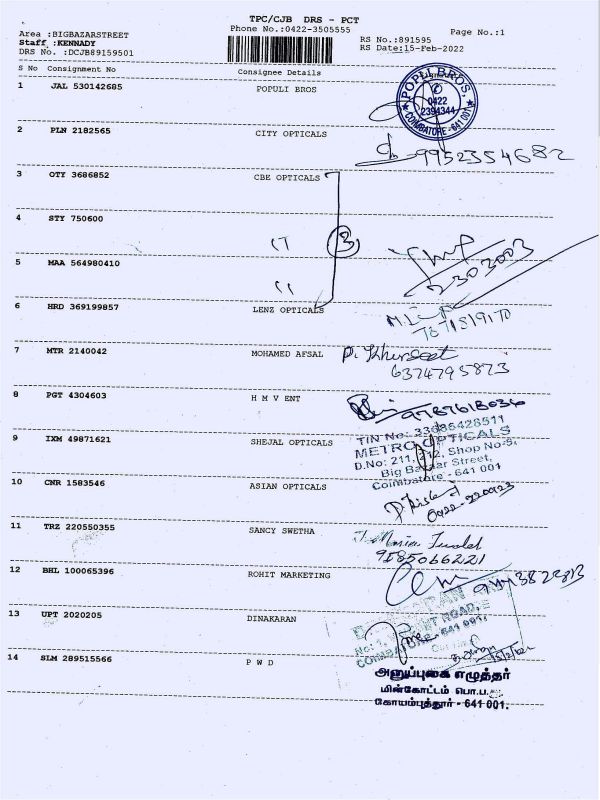 TPC/CJB DRS - PCT
Area :BIGBAZARSTREET
Phone No.:0422-3505555
Page No.:1
Staff :KENNADY
RS No.:891595
DRS No. :DCJB89159501
RS Date:15-Feb-2022
S No Consignment No Consignee Details
1 JAL 530142685 POPULI BROS
POPULI BROS,
0422
2394344
COIMBATORE - 641 001
2 PLN 2182565 CITY OPTICALS
9952354682
3 OTY 3686852 CBE OPTICALS
4 STY 750600
3
5 MAA 564980410
2303003
6 HRD 369199857 LENZ OPTICALS
7 MTR 2140042 MOHAMED AFSAL
6374795873
8 PGT 4304603 H M V ENT
9787618036
TIN No: 33686428511
METRO OPTICALS
9 IXM 49871621 SHEJAL OPTICALS
D.No: 211, 212, Shop No-9,
Big Bazaar Street,
Coimbatore - 641 001
10 CNR 1583546 ASIAN OPTICALS
11 TRZ 220550355 SANCY SWETHA
9585066221
12 BHL 100065396 ROHIT MARKETING
13 UPT 2020205 DINAKARAN
14 SLM 289515566 P W D
அனுப்புகை எழுத்தர்
மின்கோட்டம் பொ.ப.
கோயம்புத்தூர் - 641 001.